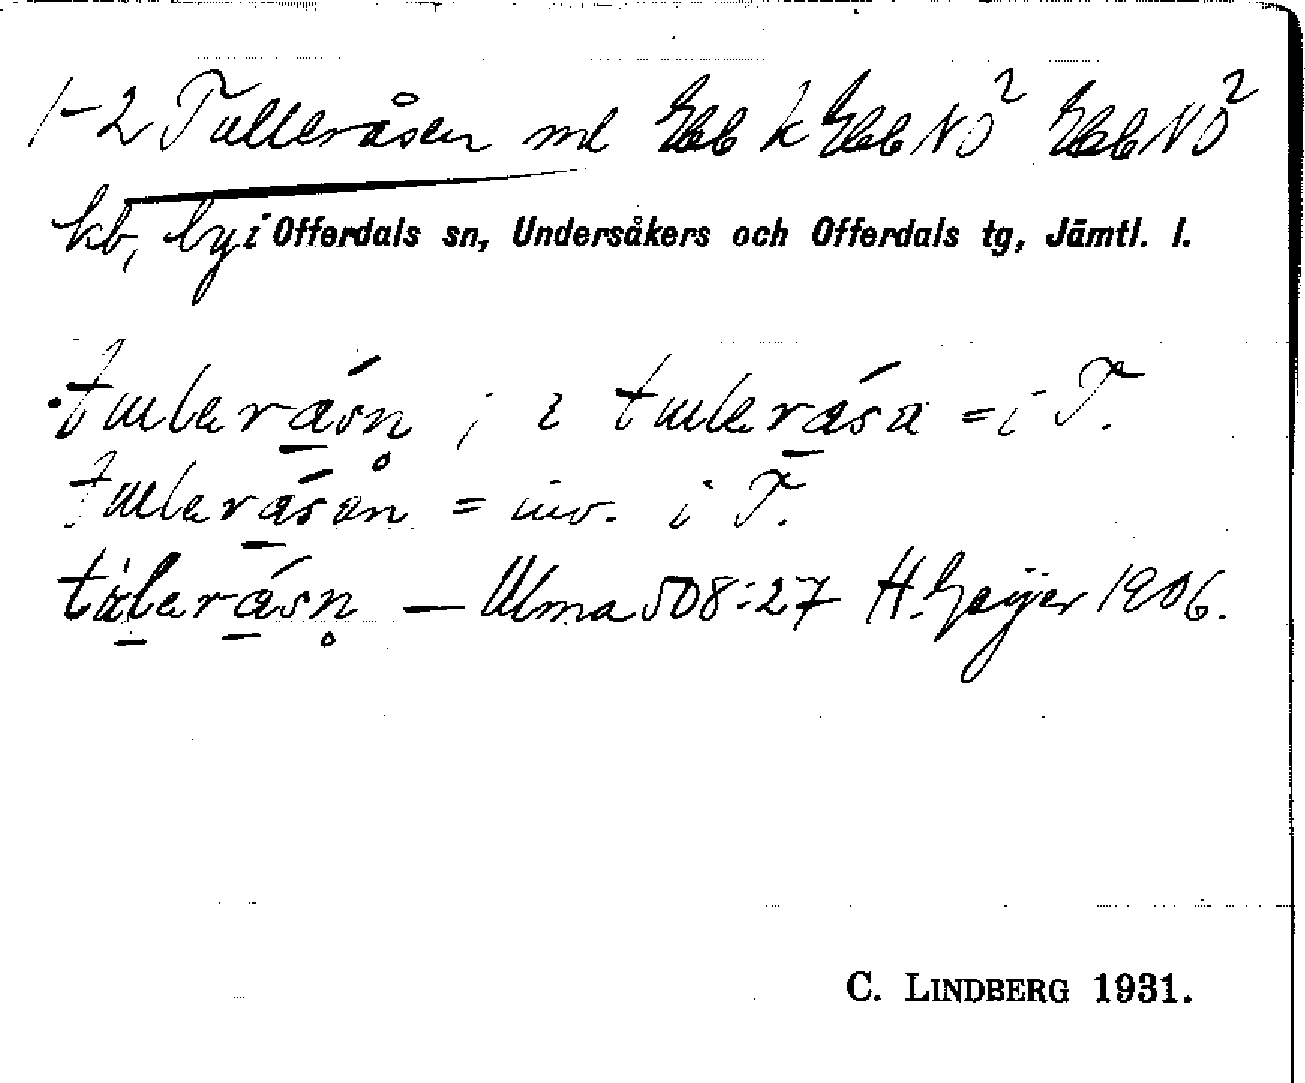 1-2 Tulleråsen ml Ebb k Ebb NO² Ebb NO²
kb, by i Offerdals sn, Undersåkers och Offerdals tg, Jämtl. l.
tulerásn̥ ; i tulerása = i T.
tulerásan = inv. i T.
tulerásn̥ — Ulma 508:27 H. Geijer 1906.
C. LINDBERG 1931.